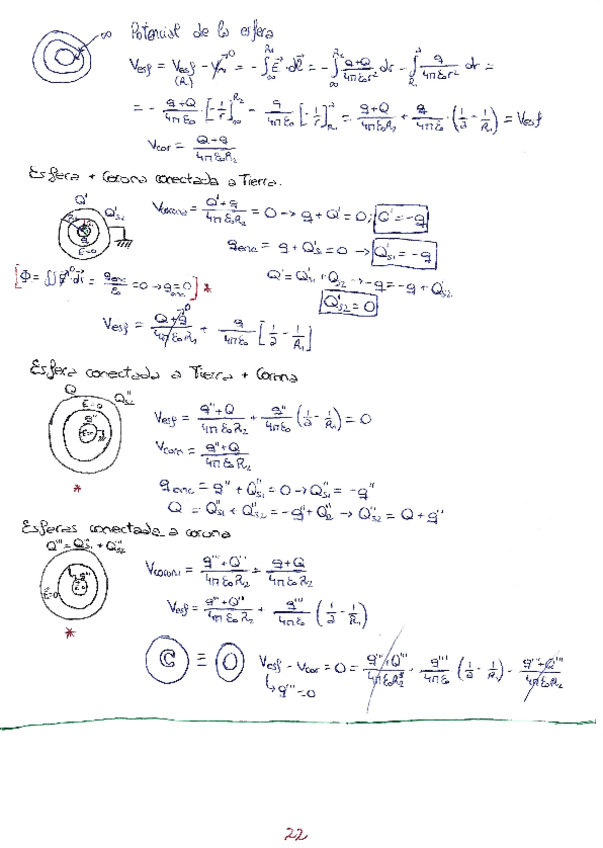 ∞ Potencial de la esfera
V_esf = V_esf (R) - V_∞^0 = -∫_∞^{R_2} E⃗·dl⃗ = -∫_∞^{R_2} (q+Q)/(4πε₀r²) dr - ∫_{R_1}^{a} q/(4πε₀r²) dr =
= - (q+Q)/(4πε₀) · [-1/r]_∞^{R_2} - q/(4πε₀) [-1/r]_{R_1}^{a} = (q+Q)/(4πε₀R₂) + q/(4πε₀) · (1/a - 1/R₁) = V_esf
V_cor = (Q+q)/(4πε₀R₂)
Esfera + Corona conectada a Tierra.
Q'
V_corona = (Q'+q)/(4πε₀R₂) = 0 → q + Q' = 0; Q' = -q
Q'_{S2}
q
E=0
q_enc = q + Q'_{S1} = 0 → Q'_{S1} = -q
[Φ = ∬ E⃗^0 ds⃗ = q_enc/ε₀ = 0 → q_enc = 0] *
Q' = Q'_{S1} + Q'_{S2} → -q = -q + Q'_{S2}
Q'_{S2} = 0
V_esf = (Q+q)^0/(4πε₀R₂) + q/(4πε₀) [1/a - 1/R₁]
Esfera conectada a Tierra + Corona
Q
Q''_{S2}
E=0
q''
E=0
V_esf = (q''+Q)/(4πε₀R₂) + q''/(4πε₀) (1/a - 1/R₁) = 0
V_corn = (q''+Q)/(4πε₀R₂)
*
q_enc = q'' + Q''_{S1} = 0 → Q''_{S1} = -q''
Q = Q''_{S1} + Q''_{S2} = -q'' + Q''_{S2} → Q''_{S2} = Q + q''
Esferas conectada a corona
Q''' = Q'''_{S1} + Q'''_{S2}
q'''
E=0
E=0
V_corona = (q'''+Q''')/(4πε₀R₂) = (q+Q)/(4πε₀R₂)
V_esf = (q'''+Q''')/(4πε₀R₂) + q'''/(4πε₀) (1/a - 1/R₁)
*
C ≡ O
V_esf - V_cor = 0 = (q'''+Q''')/(4πε₀R₂) + q'''/(4πε₀) (1/a - 1/R₁) - (q'''+Q''')/(4πε₀R₂)
↳ q''' = 0
22